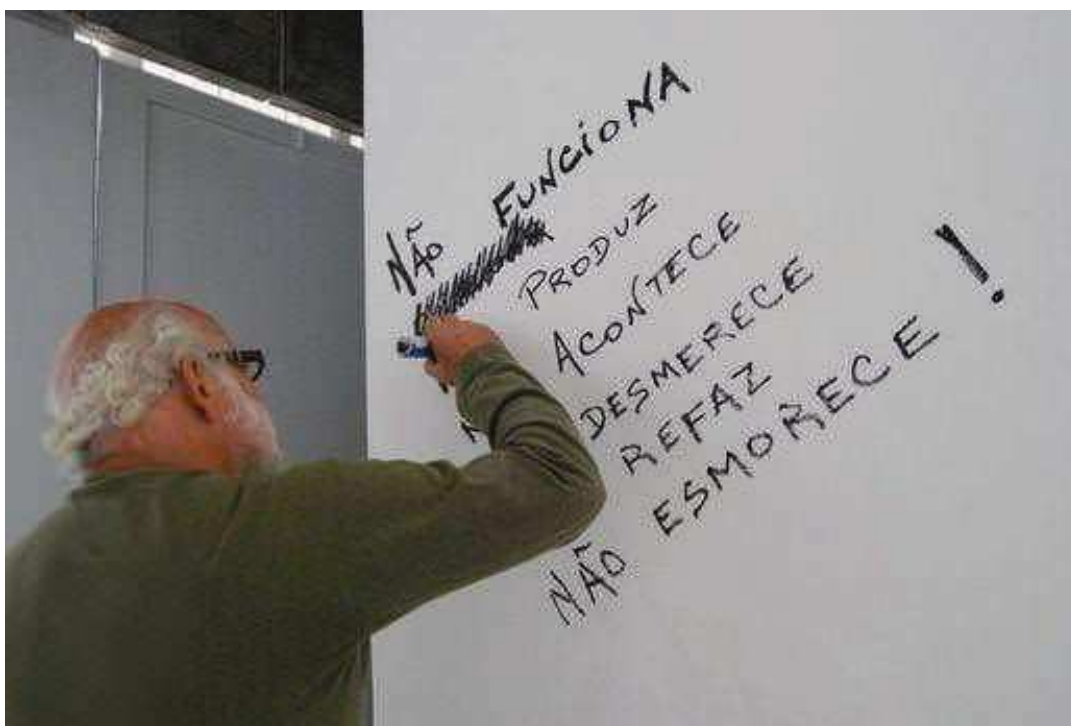 NÃO FUNCIONA
PRODUZ
ACONTECE
DESMERECE
REFAZ
NÃO ESMORECE !